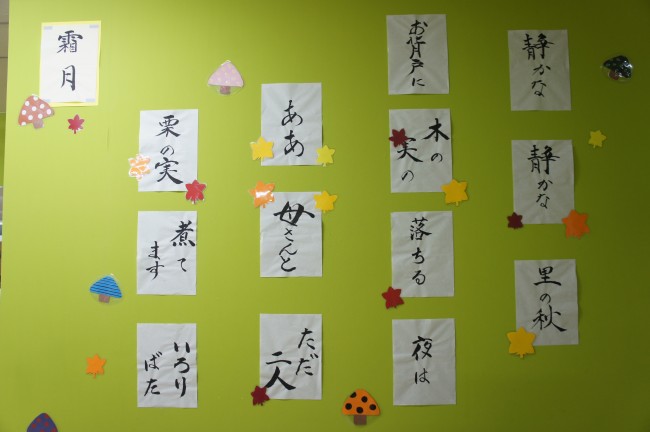 静かな
静かな
里の秋
お背戸に
木の
実の
落ちる
夜は
ああ
母さんと
ただ
二人
栗の実
煮て
ます
いろり
ばた
霜月